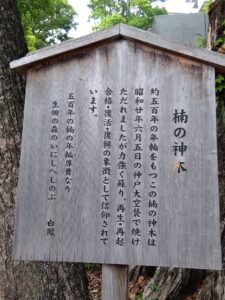 楠の神木
約五百年の年輪をもつこの楠の神木は
昭和廿年六月五日の神戸大空襲で焼け
ただれましたが力強く蘇り、再生・再起
合格・復活・復興の象徴として信仰されて
います。
五百年の楠の年輪尊貴なり
生田の森のいにしへしのぶ 白鳳